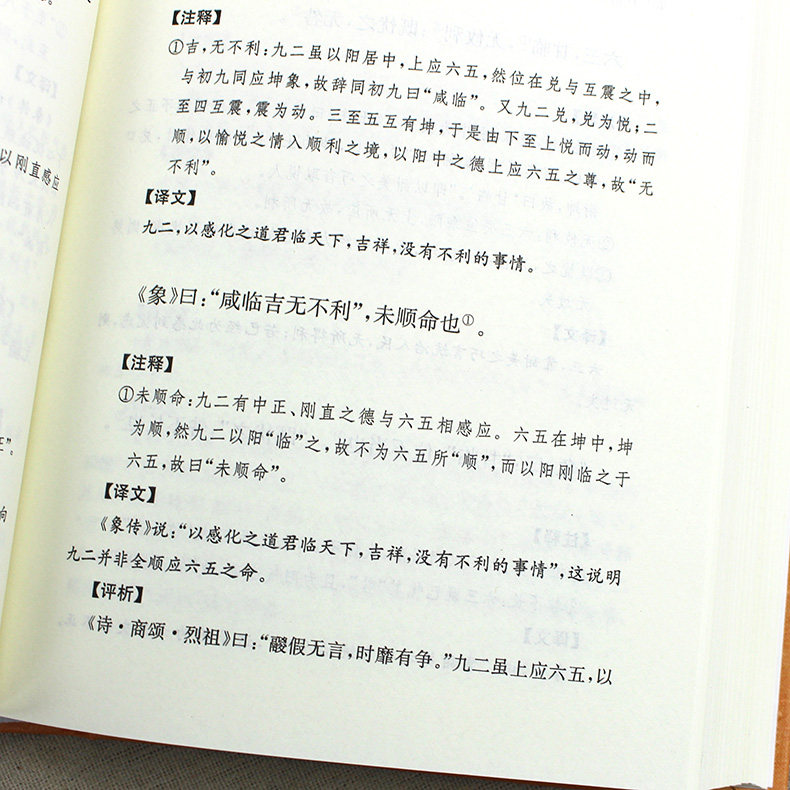 【注释】
①吉，无不利：九二虽以阳居中，上应六五，然位在兑与互震之中，
与初九同应坤象，故辞同初九曰“咸临”。又九二兑，兑为悦；二
至四互震，震为动。三至五互有坤，于是由下至上悦而动，动而
顺，以愉悦之情入顺利之境，以阳中之德上应六五之尊，故“无
不利”。
【译文】
九二，以感化之道君临天下，吉祥，没有不利的事情。
《象》曰：“咸临吉无不利”，未顺命也①。
【注释】
①未顺命：九二有中正、刚直之德与六五相感应。六五在坤中，坤
为顺，然九二以阳“临”之，故不为六五所“顺”，而以阳刚临之于
六五，故曰“未顺命”。
【译文】
《象传》说：“以感化之道君临天下，吉祥，没有不利的事情”，这说明
九二并非全顺应六五之命。
【评析】
《诗·商颂·烈祖》曰：“鬷假无言，时靡有争。”九二虽上应六五，以
以刚直感应